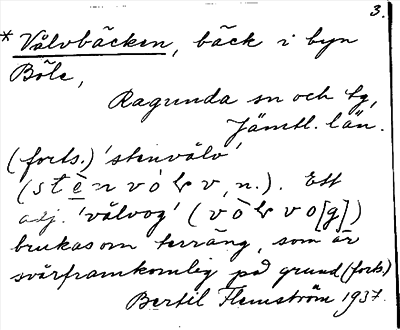 3.
* Vålvbäcken, bäck i byn
Böle,
Ragunda sn och tg,
Jämtl. län.
(forts.) 'stenvålv'
(stènvòƚv, n.). Ett
adj. 'vålvog' (vòƚvo[g])
brukas om terräng, som är
svårframkomlig på grund (forts)
Bertil Flemström 1937.